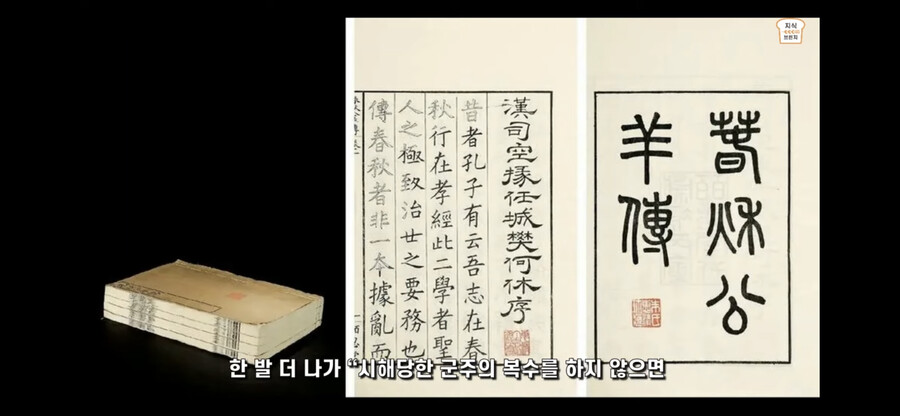 지식
브런치
春秋公
羊傳
漢司空掾任城樊何休序
昔者孔子有云吾志在春
秋行在孝經此二學者聖
人之極致治世之要務也
傳春秋者非一本據亂而
한 발 더 나가 “시해당한 군주의 복수를 하지 않으면